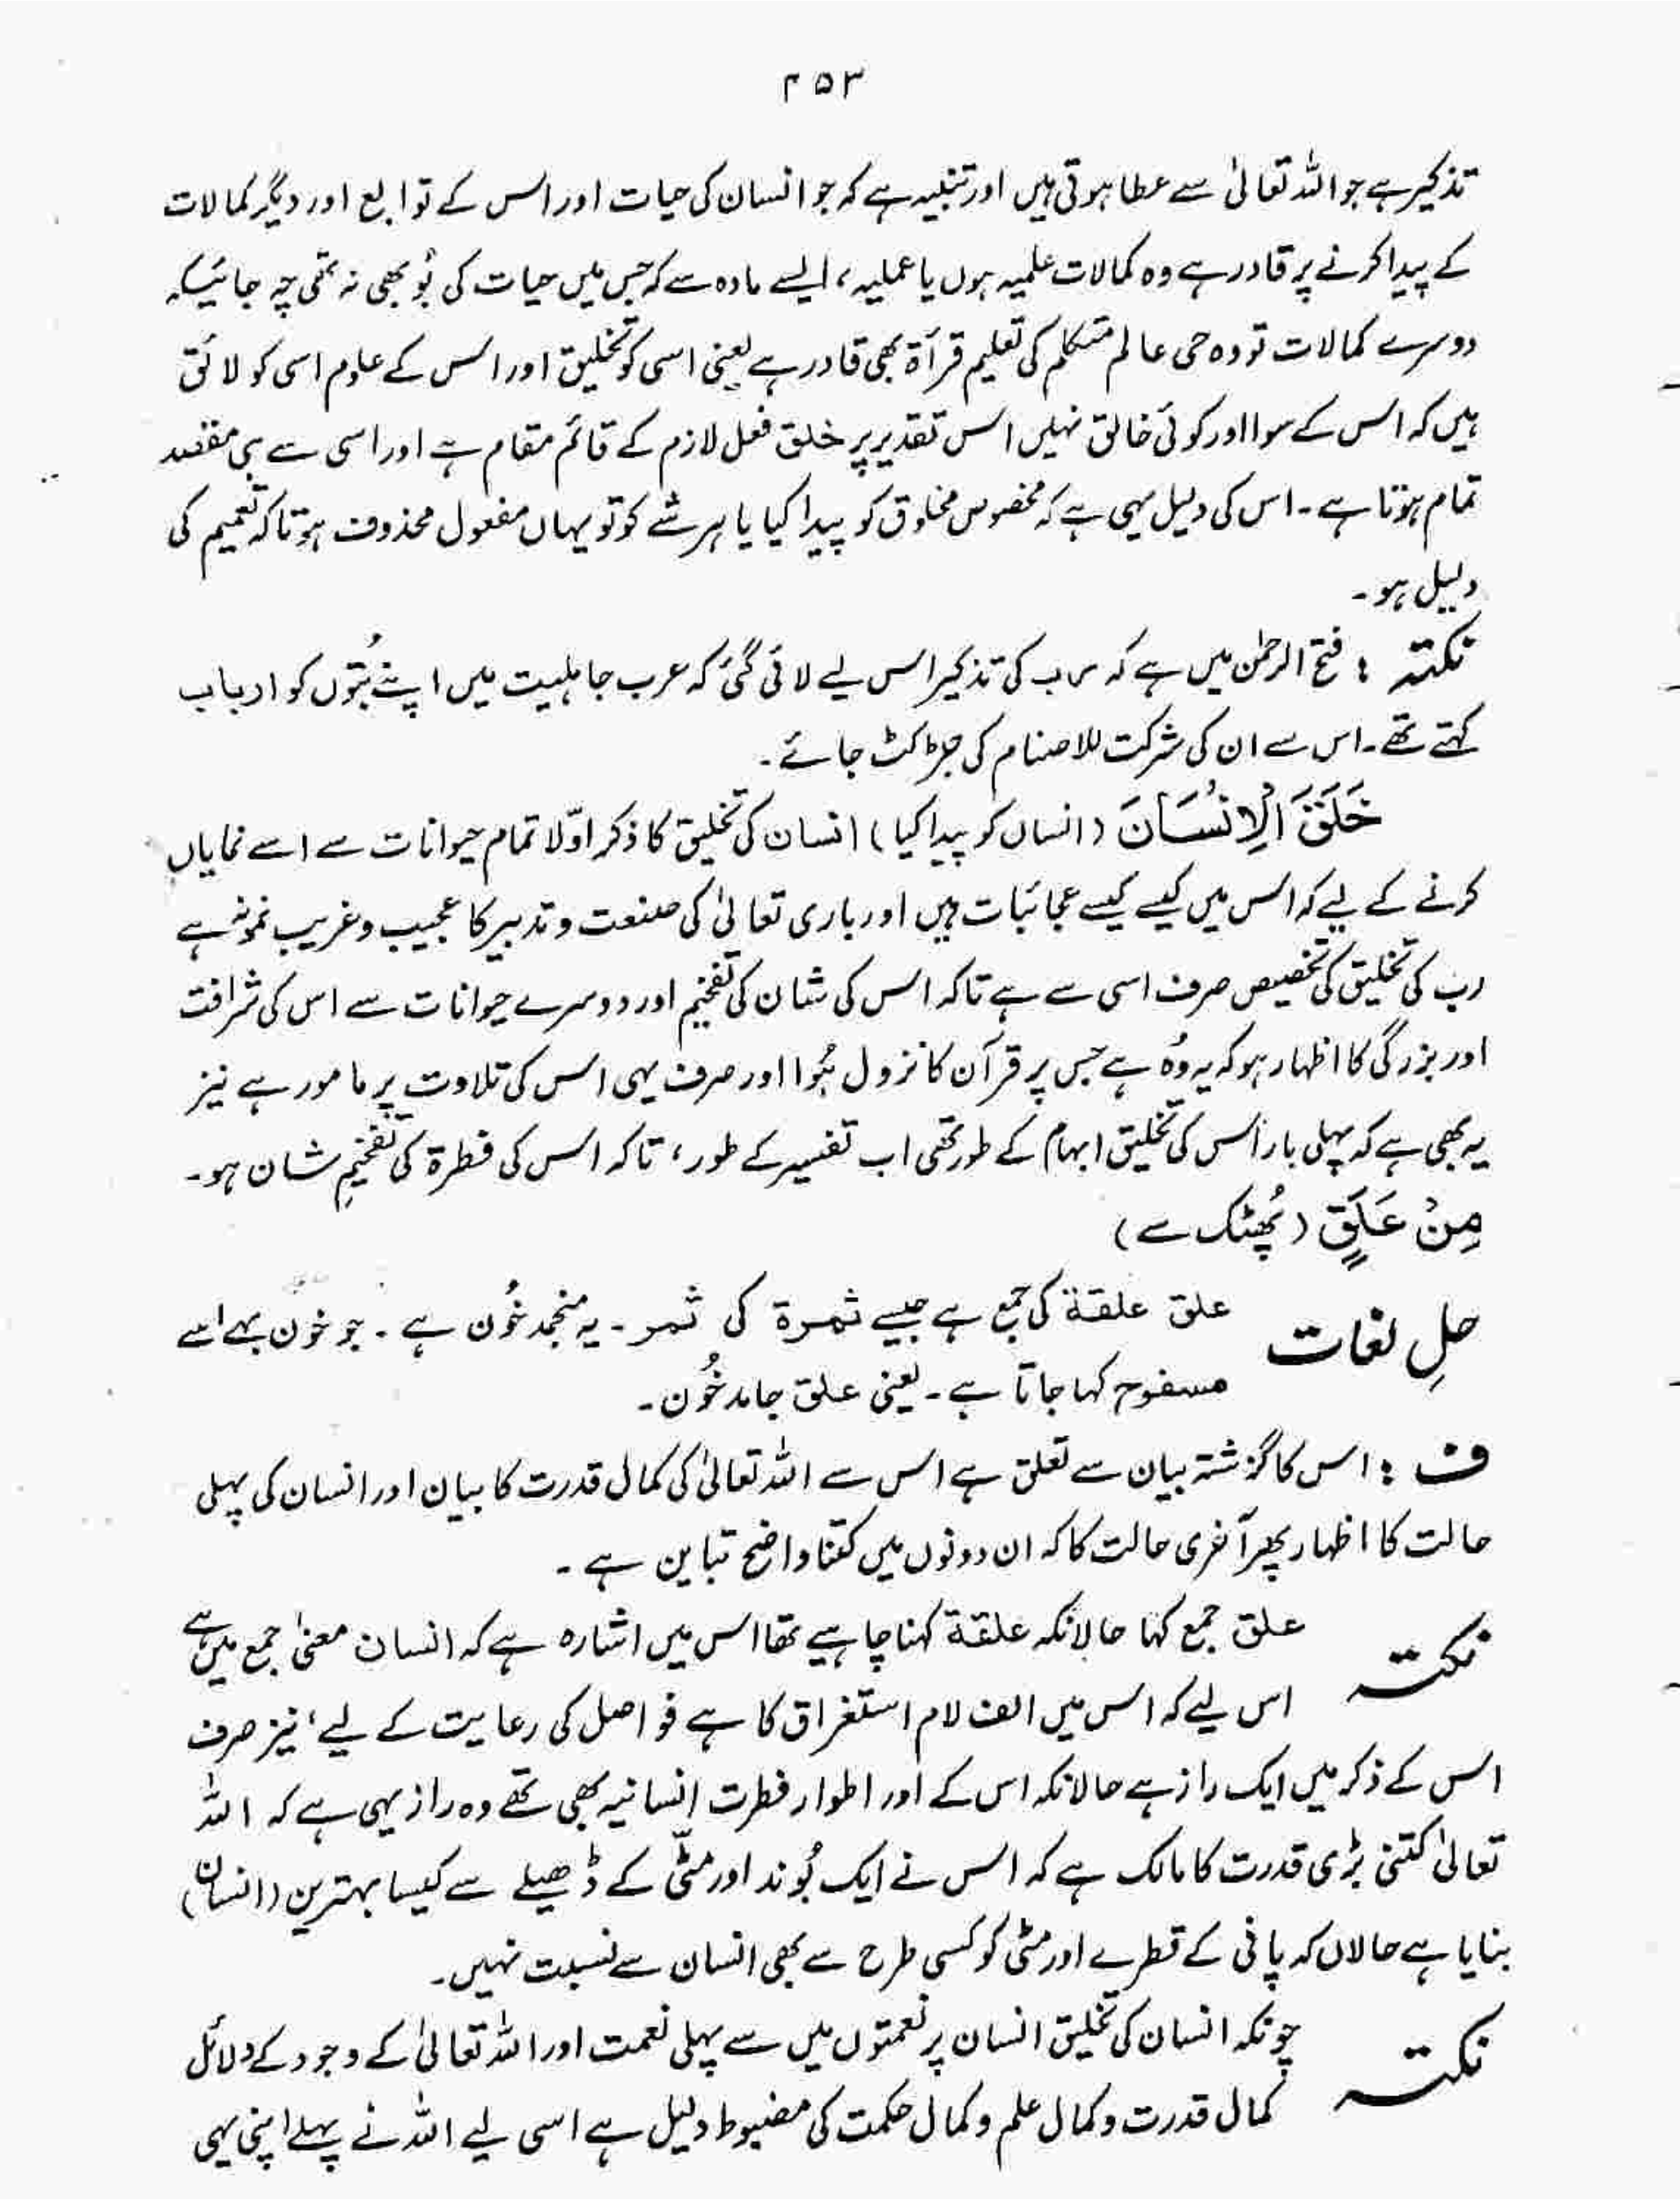 ۲۵۳
تذکیر ہے جو اللہ تعالیٰ سے عطا ہوتی ہیں اور تنبیہ ہے کہ جو انسان کی حیات اور اس کے توابع اور دیگر کمالات
کے پیدا کرنے پر قادر ہے وہ کمالات علمیہ ہوں یا عملیہ، ایسے مادہ سے کہ جس میں حیات کی بُو بھی نہ تھی چہ جائیکہ
دوسرے کمالات تو وہ حی عالم متکلم کی تعلیم قرأۃ بھی قادر ہے یعنی اسی کو تخلیق اور اس کے علوم اسی کو لائق
ہیں کہ اس کے سوا اور کوئی خالق نہیں اس تقدیر پر خلق فعل لازم کے قائم مقام ہے اور اسی سے ہی مقصد
تمام ہوتا ہے۔ اس کی دلیل یہی ہے کہ مخصوص مخلوق کو پیدا کیا یا ہر شے کو تو یہاں مفعول محذوف ہو تا کہ تعمیم کی
دلیل ہو۔
نکتہ : فتح الرحمٰن میں ہے کہ رب کی تذکیر اس لیے لائی گئی کہ عرب جاہلیت میں اپنے بُتوں کو ارباب
کہتے تھے۔ اس سے ان کی شرکت للاصنام کی جڑ کٹ جائے۔
خَلَقَ الْاِنْسَانَ (انسان کو پیدا کیا) انسان کی تخلیق کا ذکر اوّلا تمام حیوانات سے اسے نمایاں
کرنے کے لیے کہ اس میں کیسے کیسے عجائبات ہیں اور باری تعالیٰ کی صنعت و تدبیر کا عجیب و غریب نمونہ ہے
رب کی تخلیق کی تخصیص صرف اسی سے ہے تاکہ اس کی شان کی تفخیم اور دوسرے حیوانات سے اس کی شرافت
اور بزرگی کا اظہار ہو کہ یہ وُہ ہے جس پر قرآن کا نزول ہُوا اور صرف یہی اس کی تلاوت پر مامور ہے نیز
یہ بھی ہے کہ پہلی بار اس کی تخلیق ابہام کے طور تھی اب تفسیر کے طور، تاکہ اس کی فطرۃ کی تفخیمِ شان ہو۔
مِنْ عَلَقٍ (پُھٹک سے)
حلِ لغات علق علقة کی جمع ہے جیسے ثمرة کی ثمر۔ یہ منجمد خُون ہے۔ جو خون بہے اسے
مسفوح کہا جاتا ہے۔ یعنی علق جامد خُون۔
ف : اس کا گزشتہ بیان سے تعلق ہے اس سے اللہ تعالیٰ کی کمال قدرت کا بیان اور انسان کی پہلی
حالت کا اظہار پھر آخری حالت کا کہ ان دونوں میں کتنا واضح تباین ہے۔
نکتہ علق جمع کہا حالانکہ علقة کہنا چاہیے تھا اس میں اشارہ ہے کہ انسان معنیٰ جمع میں ہے
اس لیے کہ اس میں الف لام استغراق کا ہے فواصل کی رعایت کے لیے، نیز صرف
اس کے ذکر میں ایک راز ہے حالانکہ اس کے اور اطوار فطرت انسانیہ بھی تھے وہ راز یہی ہے کہ اللہ
تعالیٰ کتنی بڑی قدرت کا مالک ہے کہ اس نے ایک بُوند اور مٹّی کے ڈھیلے سے کیسا بہترین (انسان)
بنایا ہے حالاں کہ پانی کے قطرے اور مٹی کو کسی طرح سے بھی انسان سے نسبت نہیں۔
نکتہ چونکہ انسان کی تخلیق انسان پر نعمتوں میں سے پہلی نعمت اور اللہ تعالیٰ کے وجود کے دلائل
کمال قدرت و کمال علم و کمال حکمت کی مضبوط دلیل ہے اسی لیے اللہ نے پہلے اپنی یہی